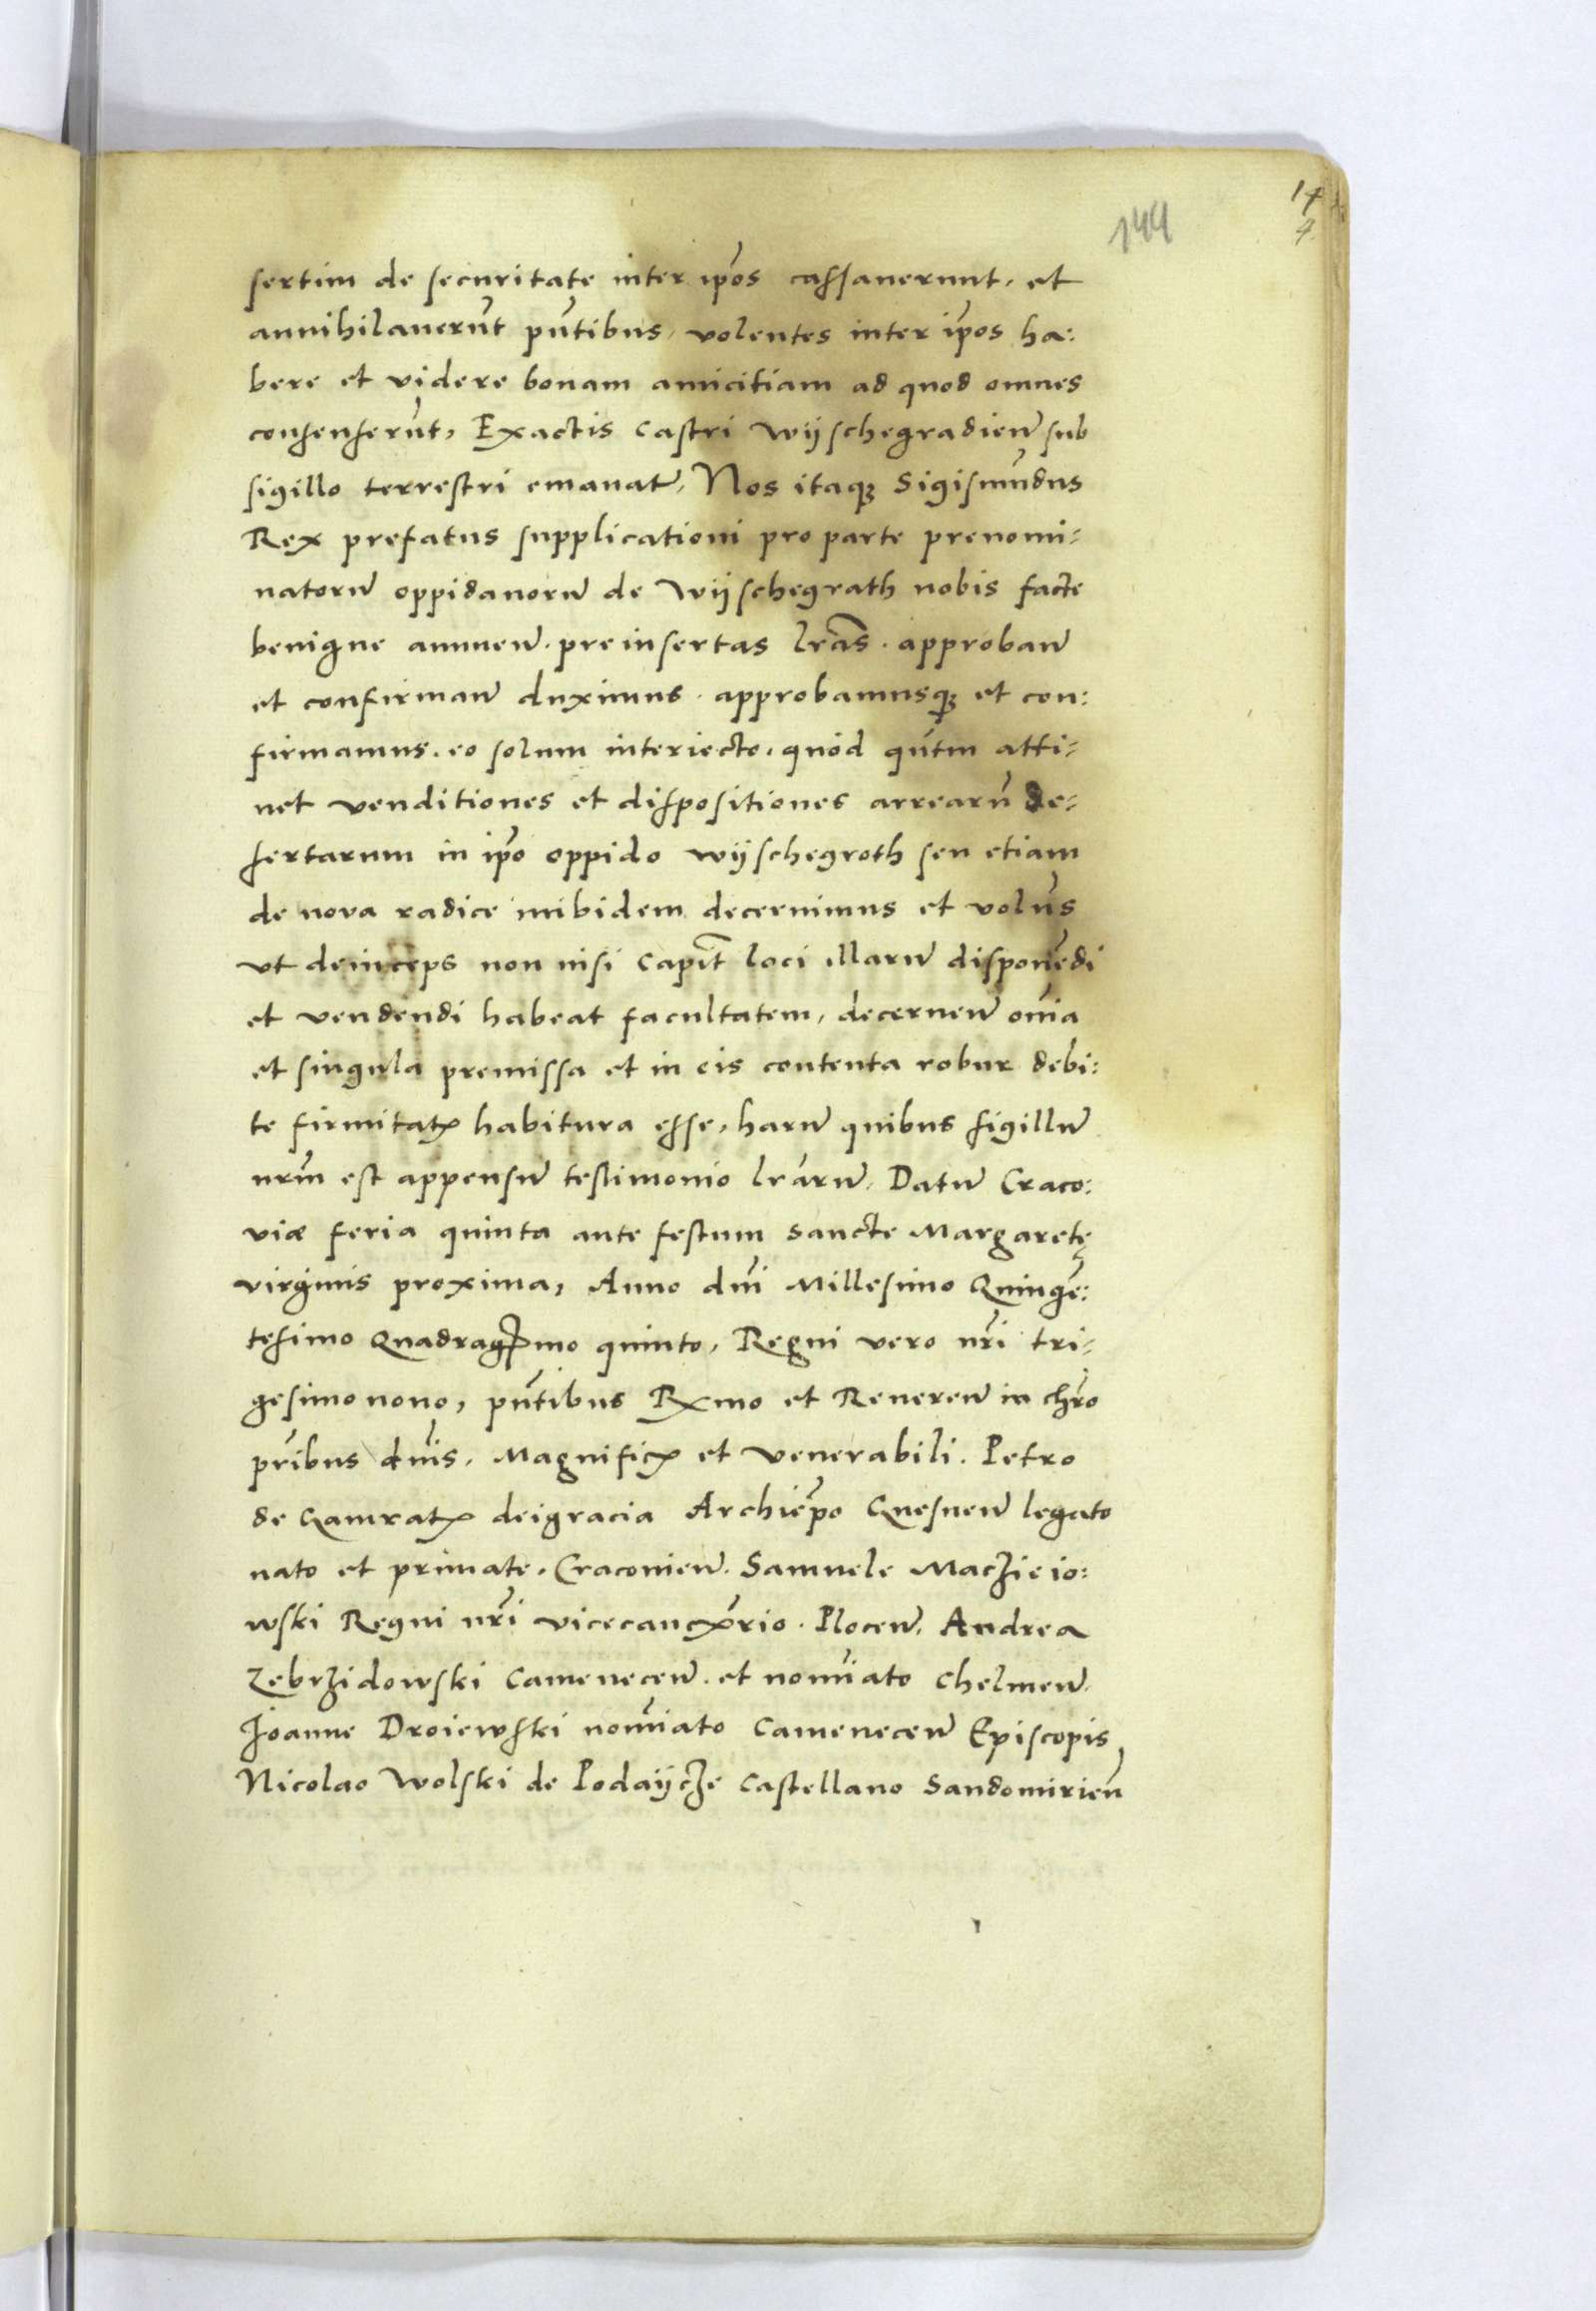 144
14
4
sertim de securitate inter ip̃os cassauerunt, et
annihilauerũt pñtibus, volentes inter ip̃os ha:
bere et videre bonam amicitiam ad quod omnes
consenserũt, Exactis castri Wÿschegradieñ sub
sigillo terrestri emanat̃, Nos itaqꝫ Sigismũdus
Rex prefatus supplicationi pro parte prenomi-
natorũ oppidanorũ de Wÿschegrath nobis facte
benigne annueñ. preinsertas lr̃as. approbañ
et confirmañ duximus. approbamusqꝫ et con:
firmamus. eo solum interiecto. quòd qũtm atti-
net venditiones et dispositiones arrearũ de-
sertarum in ip̃o oppido wÿschegroth seu etiam
de nova radice inibidem decernimus et volũs
vt deinceps non nisi Capit̃ loci illarũ disponẽdi
et vendendi habeat facultatem, decerneñ om̃ia
et singula premissa et in eis contenta robur debi:
te firmitatꝭ habitura esse, harũ quibus sigillũ
nrm̃ est appensũ testimonio lr̃arũ. Datũ Craco:
viæ feria quinta ante festum Sancte Margaretę
virginis proxima, Anno dñi Millesimo Quingẽ:
tesimo Quadragꝭmo quinto, Regni vero nrĩ tri-
gesimo nono, pñtibus Rꝭmo et Reuereñ in chrõ
pr̃ibus dñis, Magnificꝭ et Venerabili. Petro
de Gamratꝭ deigracia Archiep̃o Gnesneñ legato
nato et primate. Cracouieñ. Samuele Maczieio:
wski Regni nrĩ vicecancꝭr̃io. Ploceñ, Andrea
Zebrzidowski Cameneceñ. et nomĩato Chelmeñ.
Joanne Droiewski nomĩato Cameneceñ Episcopis,
Nicolao Wolski de Podaÿcze Castellano Sandomirieñ